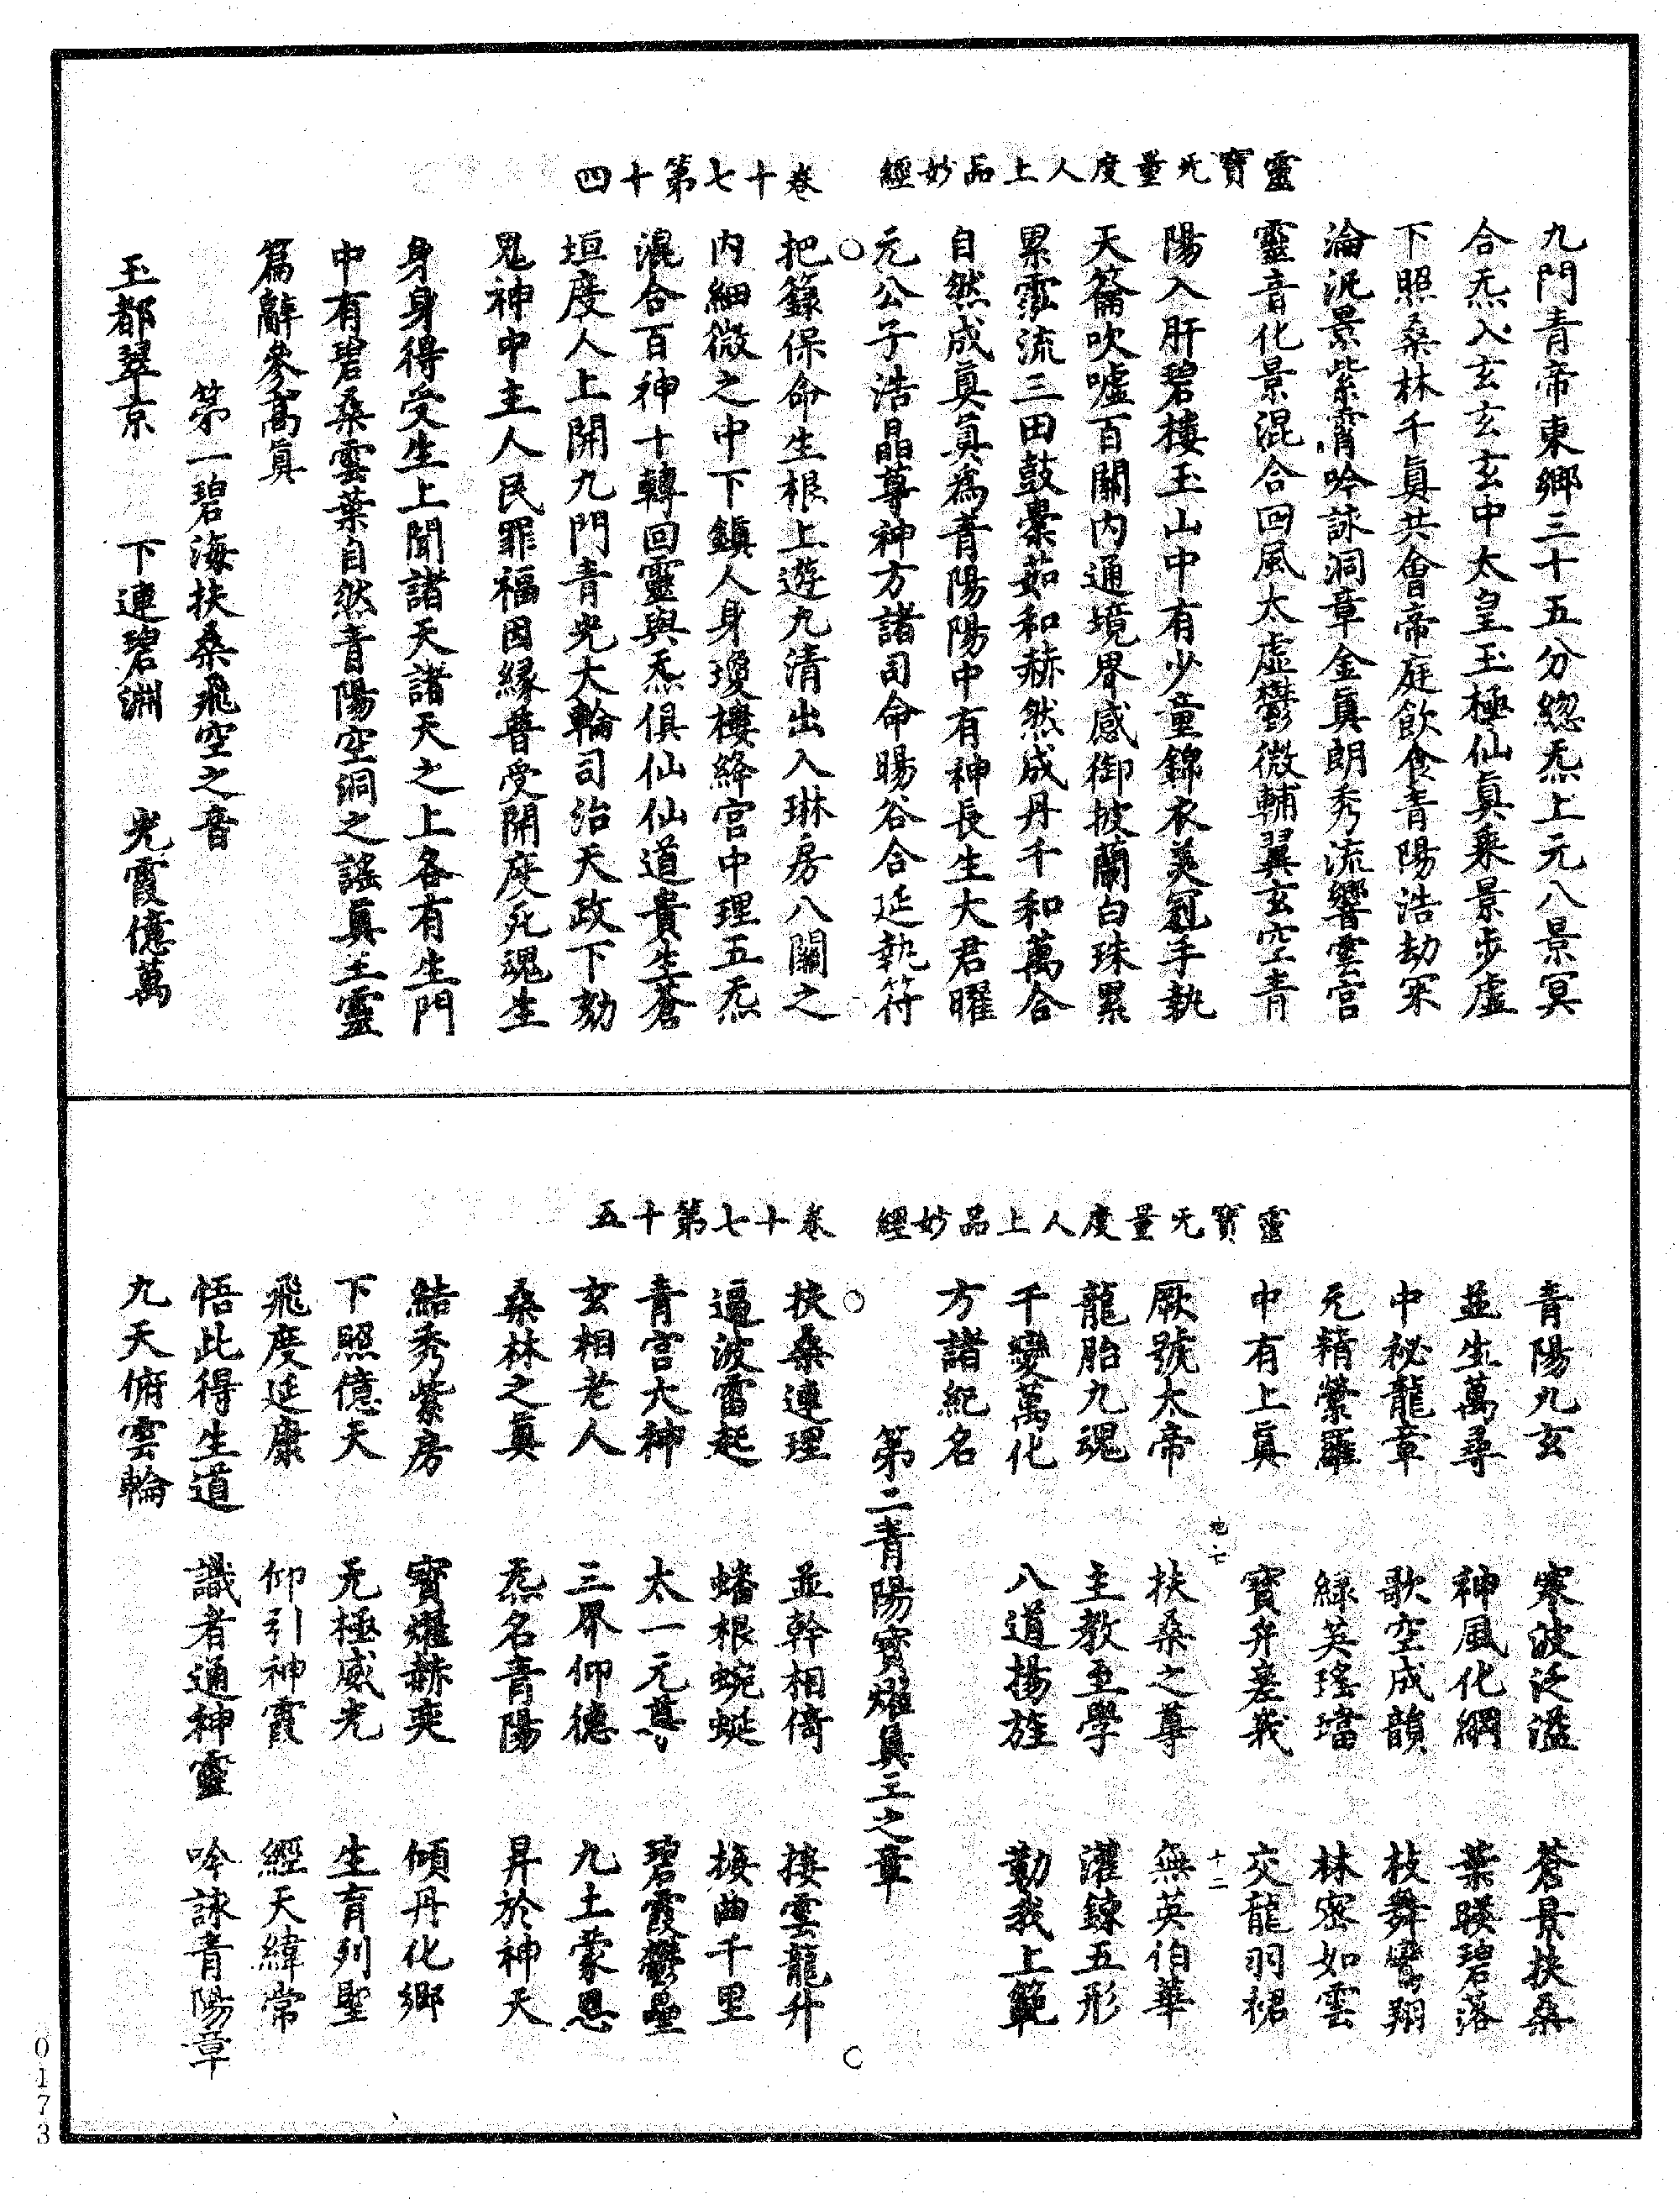 靈寶无量度人上品妙經　卷十七第十四
九門青帝東鄉三十五分緫炁上元八景冥
合炁入玄玄玄中太皇玉極仙真乘景步虛
下照桑林千真共會帝庭飲食青陽浩劫宋
淪汎景紫霄吟詠洞章金真朗秀流響雲宮
靈音化景混合回風太虛鬱微輔翼玄空青
陽入肝碧樓玉山中有少童錦衣美冠手執
天籥吹噓百關內通境界感御披蘭白珠累
累霏流三田鼓橐茹和赫然成丹千和萬合
自然成真真為青陽陽中有神長生大君曜
元公子浩晶尊神方諸司命暘谷合延執符
把籙保命生根上遊九清出入琳房八關之
內細微之中下鎮人身瓊樓絳宮中理五炁
混合百神十轉回靈與炁俱仙仙道貴生蒼
垣度人上開九門青光大輪司治天政下劾
鬼神中主人民罪福因緣普受開度死魂生
身身得受生上聞諸天諸天之上各有生門
中有碧桑雲葉自然音陽空洞之謠真土靈
篇辭參高真
第一碧海扶桑飛空之音
玉都翠京　下連碧淵　光霞億萬
靈寶无量度人上品妙經　卷十七第十五
青陽九玄　寒波泛溢　蒼景扶桑
並生萬尋　神風化綱　葉暎碧落
中秘龍章　歌空成韻　枝舞鸞翔
元精縈羅　綠英瑤璫　林密如雲
中有上真　寶弁嵳峩　交龍羽裙
地七　十二
厥號太帝　扶桑之尊　無英伯華
龍胎九魂　主教至學　灌鍊五形
千變萬化　八道揚旌　勤我上範
方諸紀名
第二青陽寶燿真王之章
扶桑連理　並幹相倚　接雲龍升
逼波雷起　蟠根蜿蜒　接曲千里
青宮大神　太一元尊　碧霞鬱壘
玄相老人　三界仰德　九土蒙恩
桑林之真　炁名青陽　昇於神天
結秀紫房　寶燿赫奕　傾丹化鄉
下照億天　无極威光　生育列聖
飛度延康　仰引神霞　經天緯常
悟此得生道　識者通神靈　吟詠青陽章
九天俯雲輪
0173